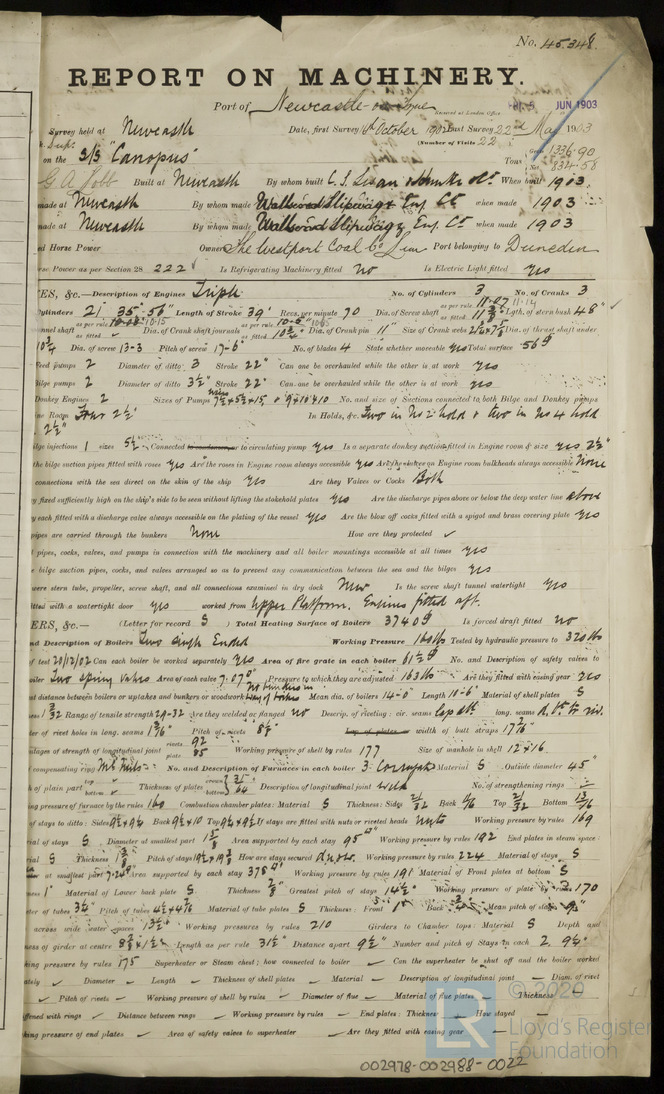 No. 45348.
REPORT ON MACHINERY.
Port of Newcastle-on-Tyne
Received at London Office 5 JUN 1903
Survey held at Newcastle Date, first Survey 4th October 1902 Last Survey 22nd May 1903
(Number of Visits 22
on the S/S "Canopus" Tons Gross 1336.90 Net 834.58
Built at Newcastle By whom built When built 1903.
made at Newcastle By whom made Wallsend Slipway & Eng. Co. when made 1903
made at Newcastle By whom made Wallsend Slipway & Eng. Co. when made 1903
ed Horse Power Owners The Westport Coal Co. Lim Port belonging to Dunedin
rse Power as per Section 28 222 Is Refrigerating Machinery fitted no Is Electric Light fitted yes
ES, &c.—Description of Engines Triple No. of Cylinders 3 No. of Cranks 3
Cylinders 21" 35" 56" Length of Stroke 39" Revs. per minute 70 Dia. of Screw shaft as per rule 11.07 Lgth. of stern bush 48"
unnel shaft as per rule as fitted Dia. of Crank shaft journals as per rule as fitted 10¾" Dia. of Crank pin 11" Size of Crank webs Dia. of thrust shaft under
10¾ Dia. of screw 13-3 Pitch of screw 17-6" No. of blades 4 State whether moveable yes Total surface 56
Feed pumps 2 Diameter of ditto 3 Stroke 22" Can one be overhauled while the other is at work yes
Bilge pumps 2 Diameter of ditto 3½" Stroke 22" Can one be overhauled while the other is at work yes
Donkey Engines 2 Sizes of Pumps No. and size of Suctions connected to both Bilge and Donkey pumps
ine Room Four 2½" In Holds, &c. Two in No 2 hold & two in No 4 hold
2½"
ilge injections 1 sizes 5½ Connected to circulating pump yes Is a separate donkey suction fitted in Engine room & size yes 2½"
the bilge suction pipes fitted with roses yes Are the roses in Engine room always accessible yes Are the sluices on Engine room bulkheads always accessible None
connections with the sea direct on the skin of the ship yes Are they Valves or Cocks Both
y fixed sufficiently high on the ship's side to be seen without lifting the stokehold plates yes Are the discharge pipes above or below the deep water line above
y each fitted with a discharge valve always accessible on the plating of the vessel yes Are the blow off cocks fitted with a spigot and brass covering plate yes
pipes are carried through the bunkers None How are they protected ✓
l pipes, cocks, valves, and pumps in connection with the machinery and all boiler mountings accessible at all times yes
bilge suction pipes, cocks, and valves arranged so as to prevent any communication between the sea and the bilges yes
were stern tube, propeller, screw shaft, and all connections examined in dry dock New Is the screw shaft tunnel watertight yes
itted with a watertight door yes worked from Upper Platform. Engines fitted aft.
ERS, &c.— (Letter for record S ) Total Heating Surface of Boilers 3740 Is forced draft fitted no
nd Description of Boilers Two Single Ended Working Pressure 160 lbs Tested by hydraulic pressure to 320 lbs
of test 20/12/02 Can each boiler be worked separately yes Area of fire grate in each boiler 61½ No. and Description of safety valves to
oiler Two spring valves Area of each valve 7.07 Pressure to which they are adjusted 163 lbs Are they fitted with easing gear yes
st distance between boilers or uptakes and bunkers or woodwork Mean dia. of boilers 14-0" Length 10-6" Material of shell plates S
Range of tensile strength 29-32 Are they welded or flanged no Descrip. of riveting: cir. seams Lap long. seams
er of rivet holes in long. seams Pitch of rivets width of butt straps
ntages of strength of longitudinal joint rivets 92 plate 85 Working pressure of shell by rules 177 Size of manhole in shell 12 x 16
compensating ring No. and Description of Furnaces in each boiler 3 Corrugated Material S Outside diameter 45"
h of plain part top bottom Thickness of plates crown bottom 35/64 Description of longitudinal joint weld No. of strengthening rings
ing pressure of furnace by the rules 160 Combustion chamber plates: Material S Thickness: Sides 21/32 Back Top 21/32 Bottom 13/16
of stays to ditto: Sides Back Top If stays are fitted with nuts or riveted heads nuts Working pressure by rules 169
rial of stays S Diameter at smallest part Area supported by each stay 95 Working pressure by rules 192 End plates in steam space:
rial S Thickness Pitch of stays How are stays secured Working pressure by rules 224 Material of stays S
at smallest part Area supported by each stay Working pressure by rules 191 Material of Front plates at bottom S
ess 1" Material of Lower back plate S Thickness Greatest pitch of stays 14½" Working pressure of plate by rules 170
ter of tubes 3½" Pitch of tubes Material of tube plates S Thickness: Front 1" Back Mean pitch of stays
across wide water spaces 13½" Working pressures by rules 210 Girders to Chamber tops: Material S Depth and
ess of girder at centre Length as per rule 31½" Distance apart 9½" Number and pitch of Stays in each 2.
king pressure by rules 175 Superheater or Steam chest; how connected to boiler — Can the superheater be shut off and the boiler worked
ately — Diameter — Length — Thickness of shell plates — Material — Description of longitudinal joint — Diam. of rivet
— Pitch of rivets — Working pressure of shell by rules — Diameter of flue — Material of flue plates — Thickness
ffened with rings — Distance between rings — Working pressure by rules — End plates: Thickness — How stayed —
king pressure of end plates — Area of safety valves to superheater — Are they fitted with easing gear —
© 2020
Lloyd's Register
Foundation
002978-002988-0022